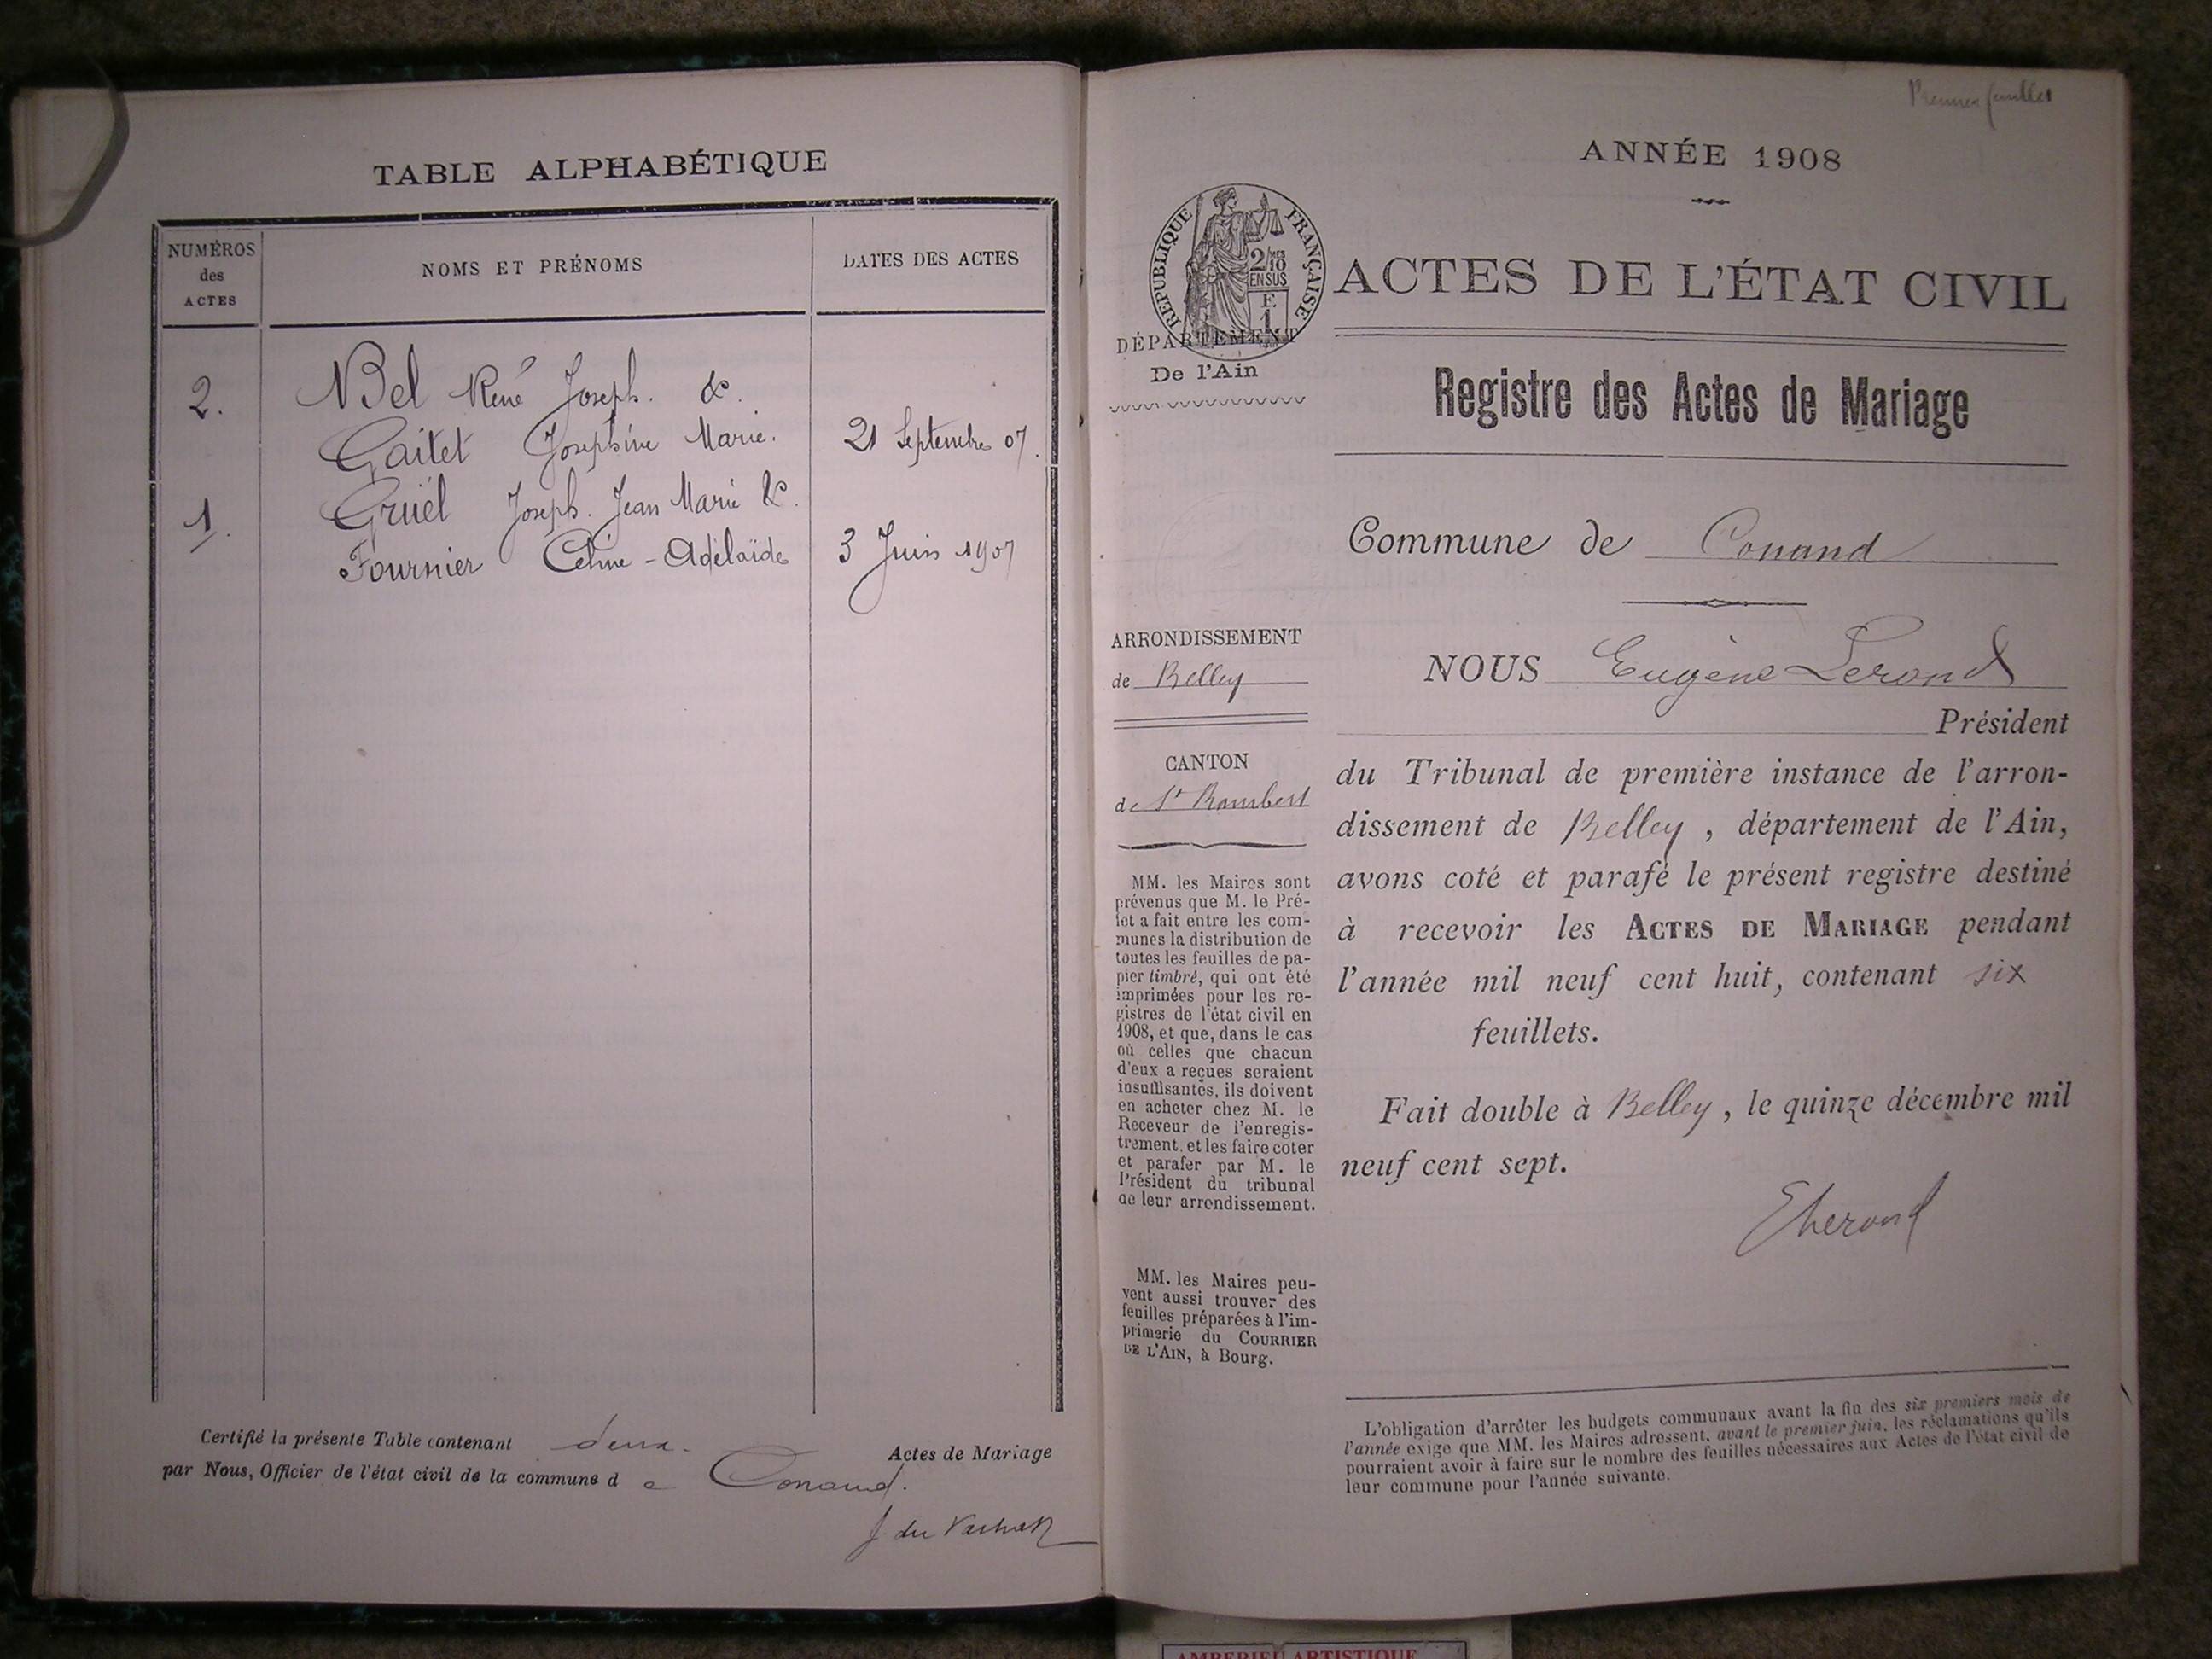 TABLE ALPHABÉTIQUE
NUMÉROS
des
ACTES
NOMS ET PRÉNOMS
DATES DES ACTES
2. Bel René Joseph. &.
Gaitet Joséphine Marie. 21 Septembre 07.
1. Gruël Joseph. Jean Marie &.
Fournier Céline-Adélaïde 3 Juin 1907
Certifié la présente Table contenant deux. Actes de Mariage
par Nous, Officier de l'état civil de la commune d e Conand.
Premier feuillet
ANNÉE 1908
RÉPUBLIQUE FRANÇAISE
2/10 MES
EN SUS
F.
1
DÉPARTEMENT
De l'Ain
ACTES DE L'ÉTAT CIVIL
Registre des Actes de Mariage
Commune de Conand
ARRONDISSEMENT
de Belley
CANTON
de St Rambert
MM. les Maires sont
prévenus que M. le Pré-
fet a fait entre les com-
munes la distribution de
toutes les feuilles de pa-
pier timbré, qui ont été
imprimées pour les re-
gistres de l'état civil en
1908, et que, dans le cas
où celles que chacun
d'eux a reçues seraient
insuffisantes, ils doivent
en acheter chez M. le
Receveur de l'enregis-
trement, et les faire coter
et parafer par M. le
Président du tribunal
de leur arrondissement.
MM. les Maires peu-
vent aussi trouver des
feuilles préparées à l'im-
primerie du COURRIER
DE L'AIN, à Bourg.
NOUS Eugène Lerond
Président
du Tribunal de première instance de l'arron-
dissement de Belley, département de l'Ain,
avons coté et parafé le présent registre destiné
à recevoir les ACTES DE MARIAGE pendant
l'année mil neuf cent huit, contenant six
feuillets.
Fait double à Belley, le quinze décembre mil
neuf cent sept.
L'obligation d'arrêter les budgets communaux avant la fin des six premiers mois de
l'année exige que MM. les Maires adressent, avant le premier juin, les réclamations qu'ils
pourraient avoir à faire sur le nombre des feuilles nécessaires aux Actes de l'état civil de
leur commune pour l'année suivante.
AMBERIEU ARTISTIQUE